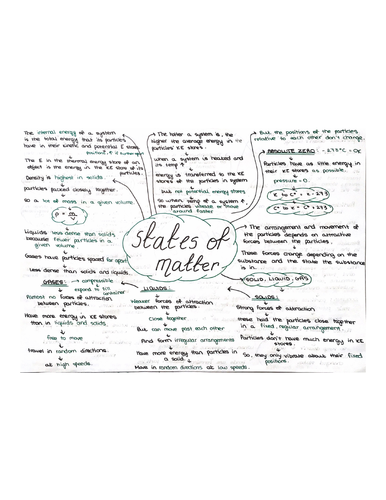 The internal energy of a system
is the total energy that its particles
have in their kinetic and potential E stores
The E in the thermal energy store of an
object is the energy in the KE store of its
particles.
Density is highest in solids
particles packed closely together
So a lot of mass in a given volume
ρ = m/v
Liquids less dense than solids
because fewer particles in a
given volume
Gases have particles spaced far apart
Less dense than solids and liquids.
The hotter a system is, the
higher the average energy in the
particles' KE stores.
when a system is heated and
its temp ↑
energy is transferred to the KE
stores of the particles in system
but not potential energy stores
So when temp of a system ↑,
the particles vibrate or move
around faster
But the positions of the particles
relative to each other don't change.
ABSOLUTE ZERO: -273°C = 0K
Particles have as little energy in
their KE stores as possible.
pressure = 0
K to C° = K - 273
C° to K = C° + 273
States of
matter
The arrangement and movement of
the particles depends on attractive
forces between the particles.
These forces change depending on the
substance and the state the substance
is in.
SOLID, LIQUID, GAS
GASES:
compressible
expand to fill
container
Almost no forces of attraction
between particles.
Have more energy in KE stores
than in liquids and solids.
free to move
travel in random directions.
at high speeds.
LIQUIDS
Weaker forces of attraction
between the particles.
Close together
But can move past each other
And form irregular arrangements
Have more energy than particles in
a solid
Move in random directions at low speeds.
SOLIDS:
Strong forces of attraction
these hold the particles close together
in a fixed, regular arrangement.
Particles don't have much energy in KE
stores.
So, they only vibrate about their fixed
positions.